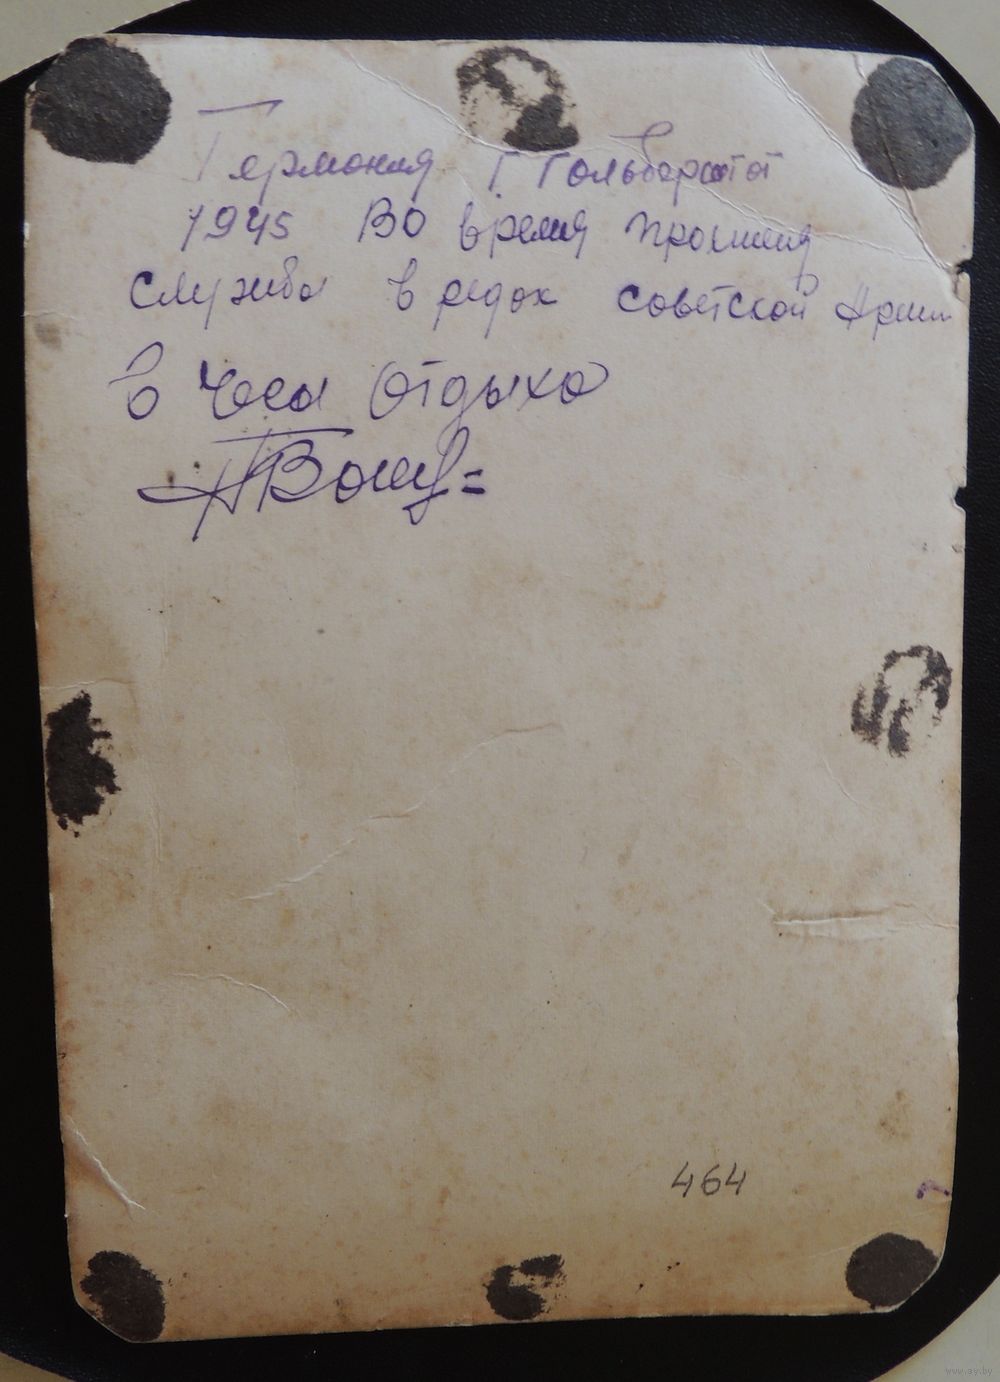 Германия Г Гольберштот
1945 ВО время прохшения
службы в рядах советской Армии
в Часы Отдыха
464
www.ay.by